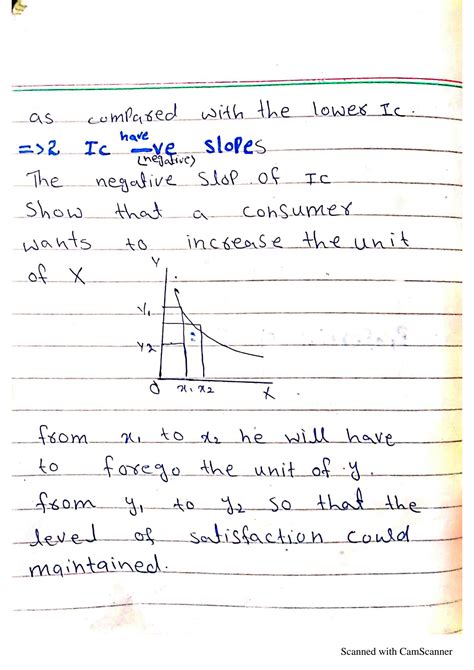 as compared with the lower Ic.
=>2 Ic have -ve slopes
(negative)
The negative Slop of Ic
Show that a consumer
wants to increase the unit
of X
Y
Y1
Y2
O x1 x2 X
from x1 to x2 he will have
to forego the unit of y.
from y1 to y2 so that the
level of satisfaction could
maintained.
Scanned with CamScanner